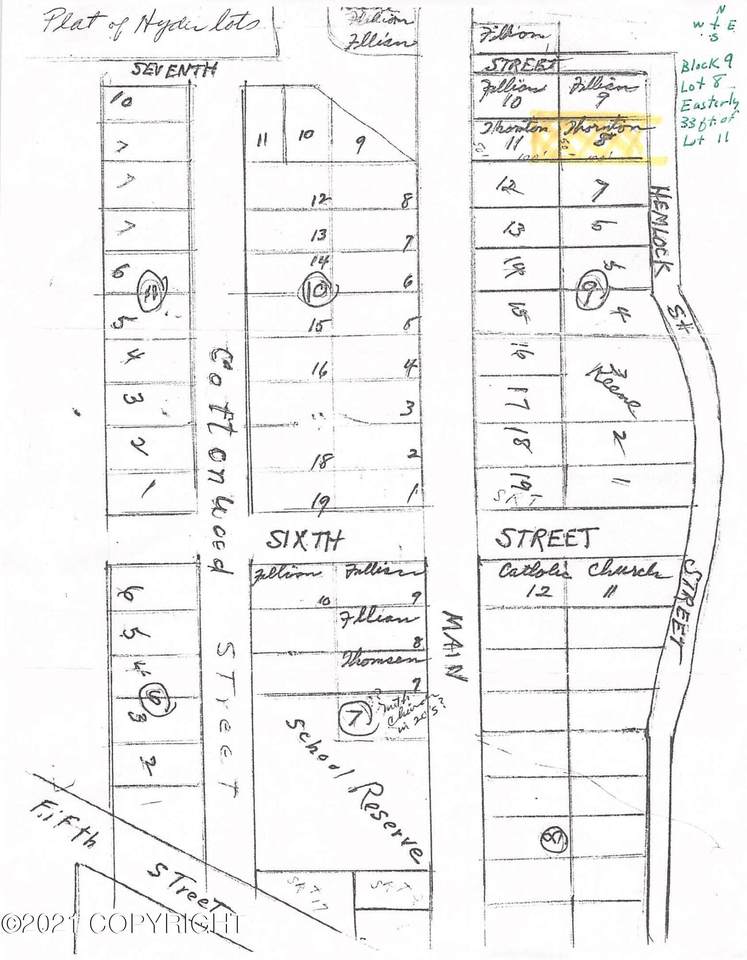 Plat of Hyder lots
Fillian
Fillian
N
W E
S
SEVENTH
STREET
Block 9
Lot 8
Easterly
33 ft of
Lot 11
10
11
10
9
Fillian
10
Fillian
9
Thornton
11
Thornton
8
6
5
4
3
2
1
12
13
14
10
15
16
18
19
8
7
6
5
4
3
2
1
12
13
15
16
17
18
19
SKT
7
6
5
9
4
3
Keene
2
1
HEMLOCK
St
STREET
Cottonwood
STreet
SIXTH
STREET
MAIN
6
5
4
3
2
1
Fillion
10
Fillian
9
Fillian
8
Thomsen
7
7
School Reserve
Catholic Church
12
11
8
Fifth
STreet
SKT 17
SKT
©2021 COPYRIGHT